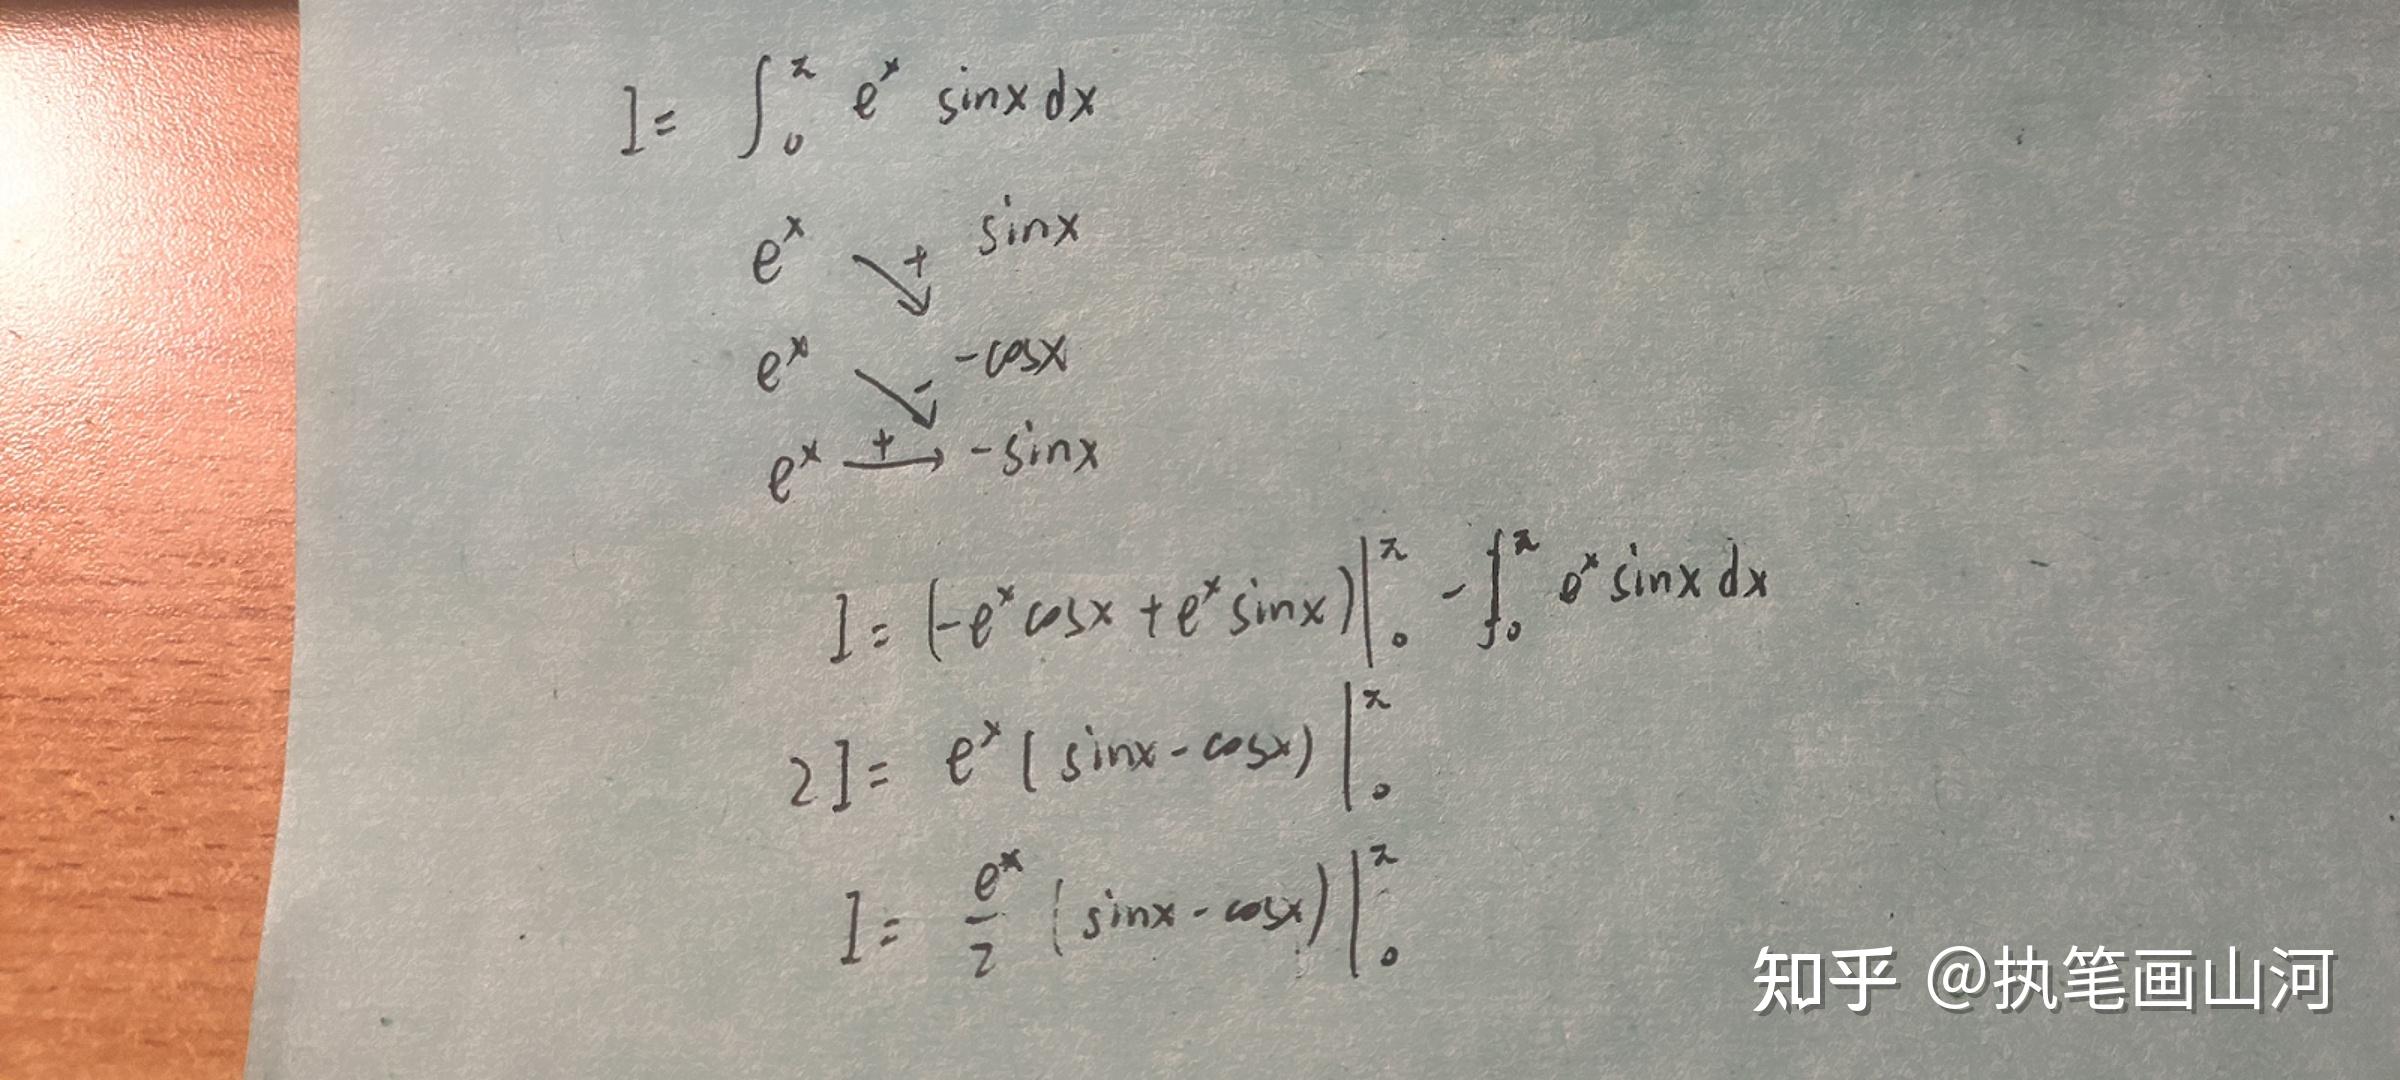 I = ∫₀^π eˣ sinx dx
eˣ ↘+ sinx
eˣ ↘- -cosx
eˣ →+ -sinx
I = (-eˣcosx + eˣsinx)|₀^π - ∫₀^π eˣ sinx dx
2I = eˣ(sinx - cosx)|₀^π
I = eˣ/2 (sinx - cosx)|₀^π
知乎 @执笔画山河